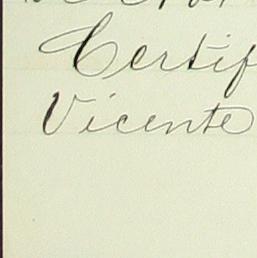 Certif
Vicente